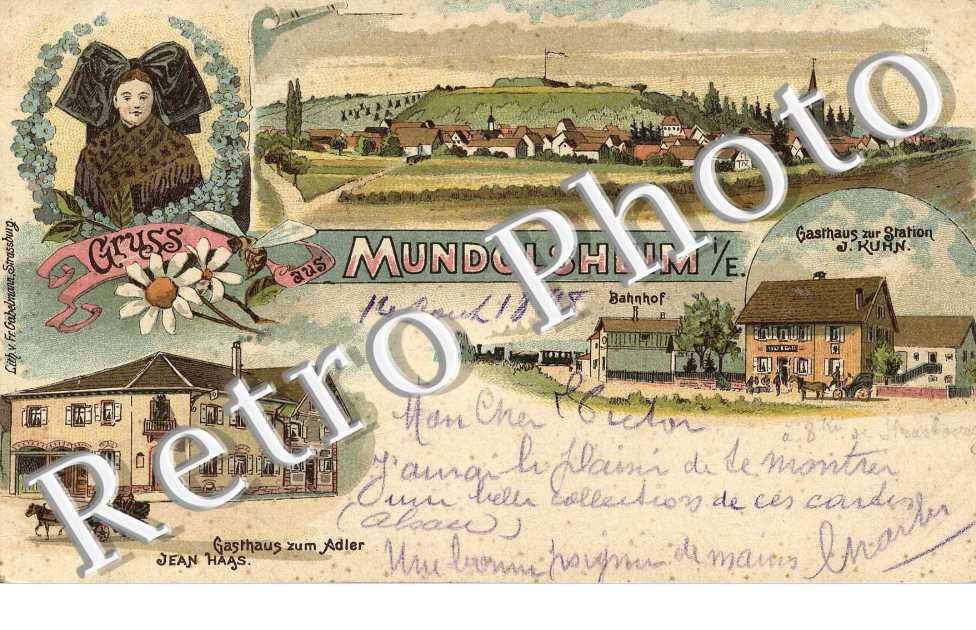 Gruss
aus
MUNDOLSHEIM I/E.
Gasthaus zur Station
J. KUHN.
Bahnhof
Lith. v. Fr. Grabelmann, Strassburg.
Mon Cher Victor
J'aurai le plaisir de te montrer
une belle collection de ces cartes
(Alsace)
Une bonne poignée de mains
Gasthaus zum Adler
JEAN HAAS.
Retro Photo